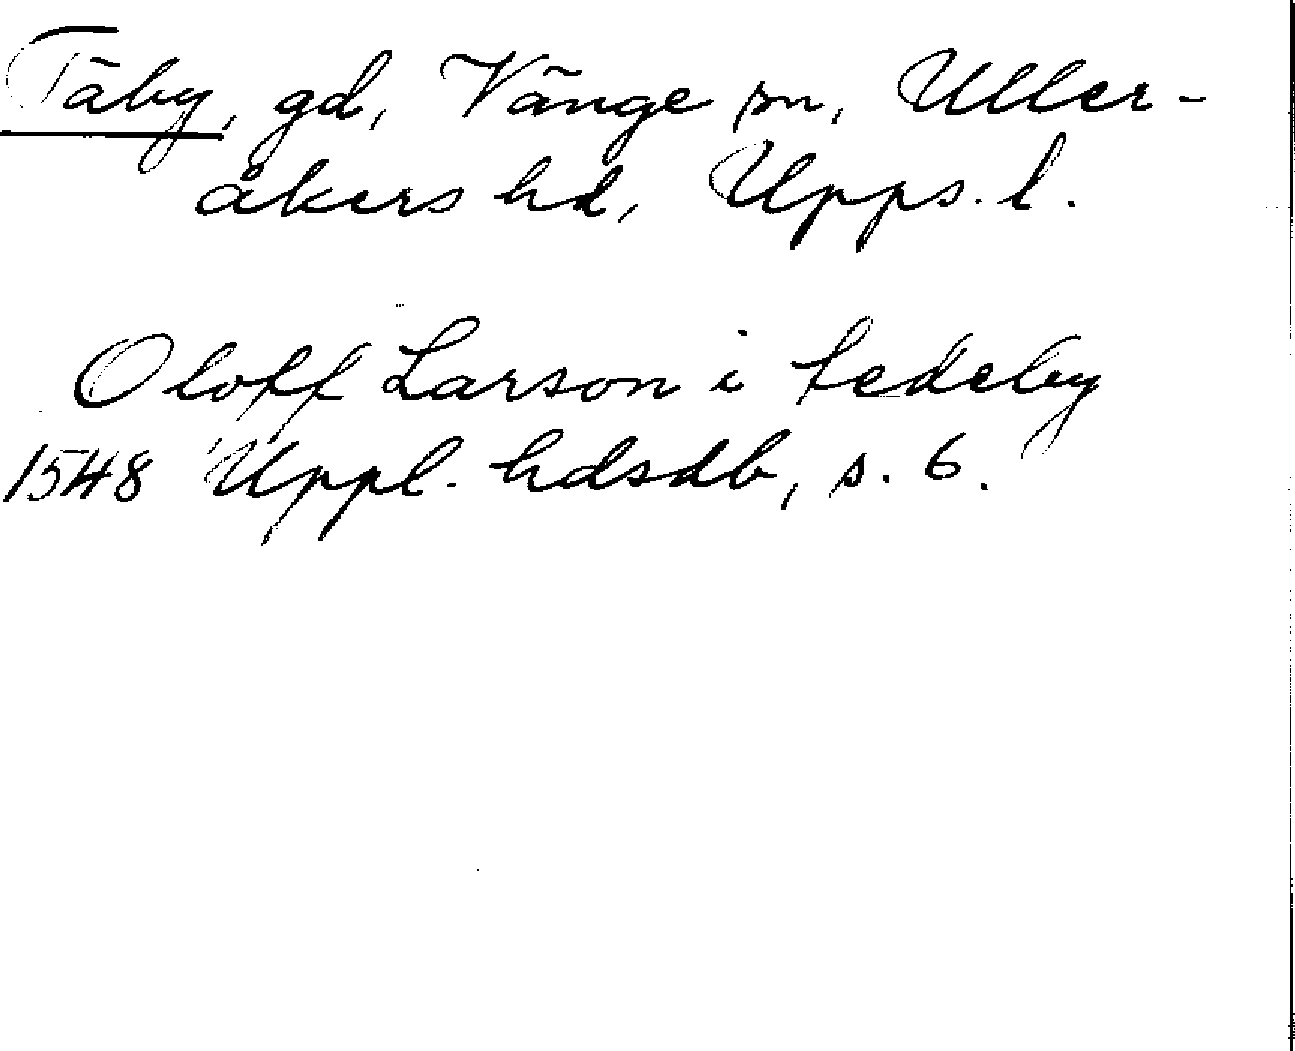 Täby, gd, Vänge sn, Uller-
åkers hd, Upps. l.
Oloff Larson i tedeby
1548 Uppl. hdsdb, s. 6.